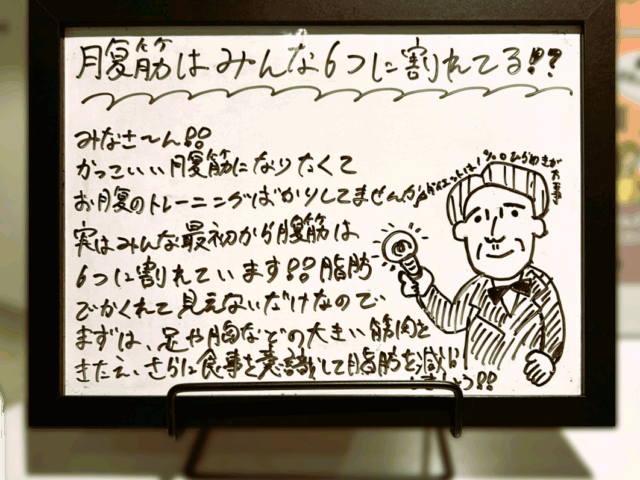 腹筋はみんな6つに割れてる!?
みなさ〜ん!!
かっこいい腹筋になりたくて
お腹のトレーニングばかりしてませんか?
実はみんな最初から腹筋は
6つに割れています!!脂肪
でかくれて見えないだけなので
まずは、足や胸などの大きい筋肉を
きたえ、さらに食事を意識して脂肪を減ら
しましょう!!
ダイエットは1%のひらめきが
大事